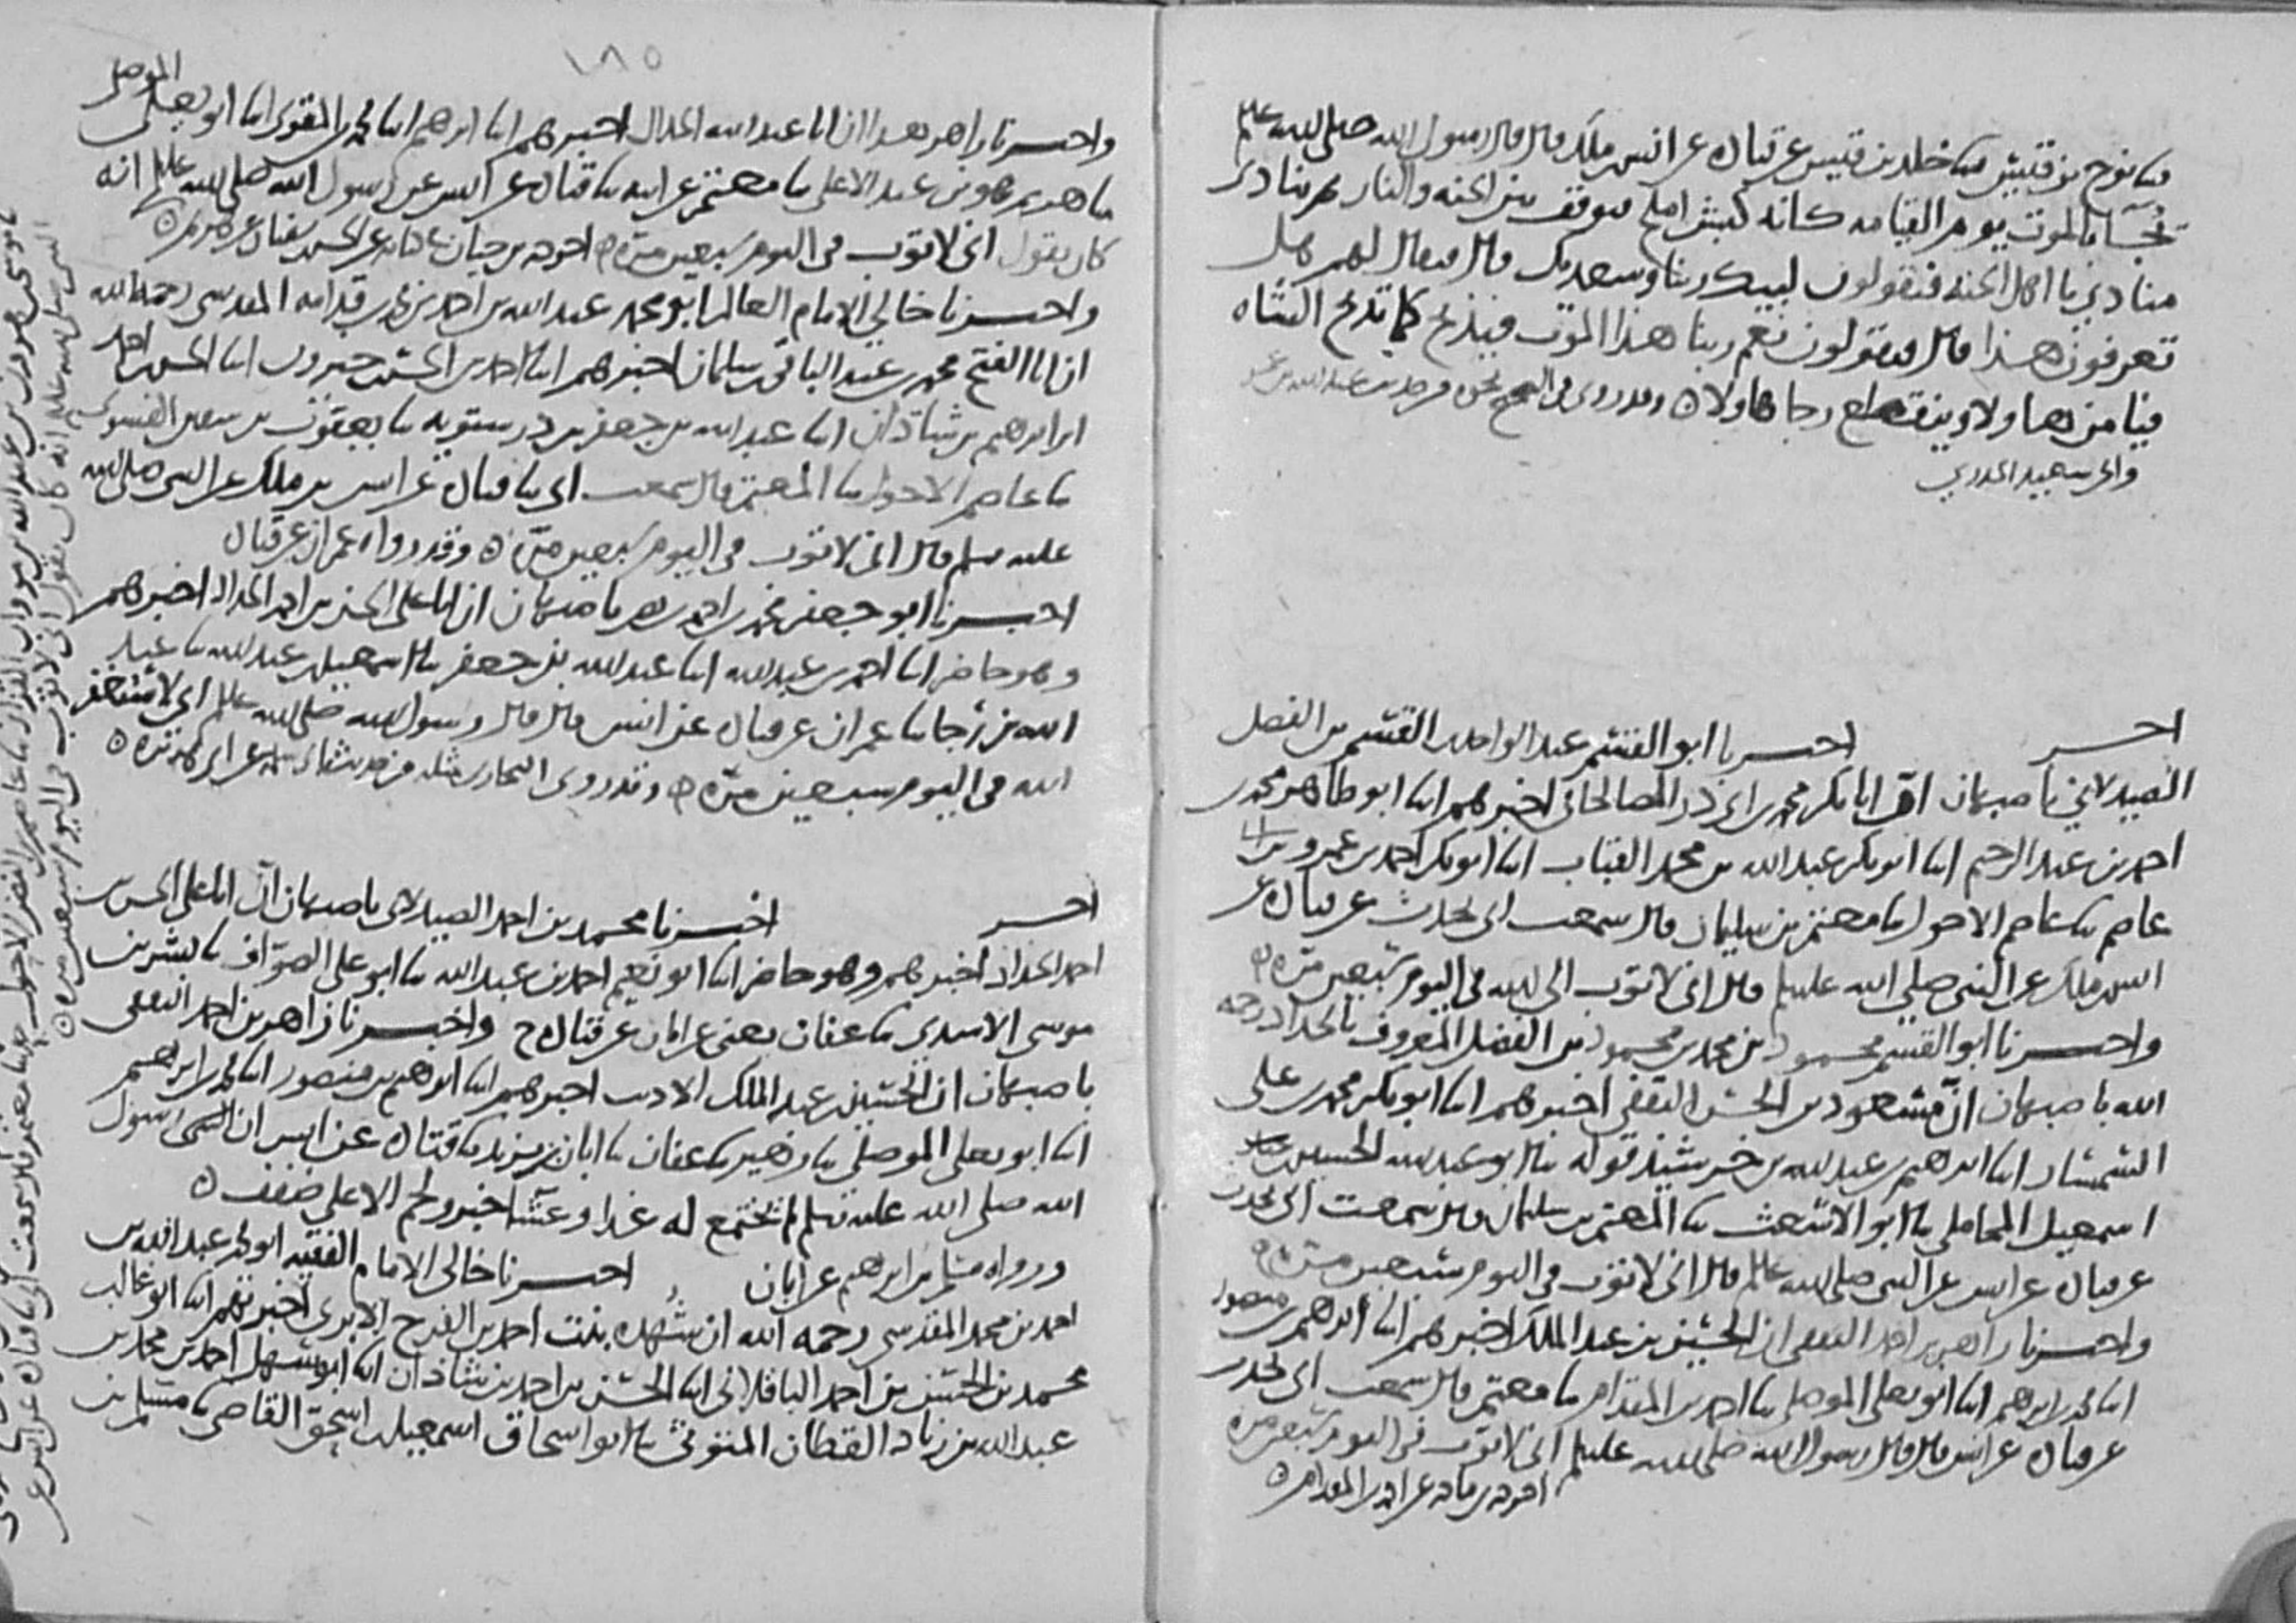 ثنا نوح بن قيس ثنا خلد بن قيس عن قتاده عن انس بن ملك قال قال رسول الله صلى الله عليه وسلم
يجآ بالموت يوم القيامه كانه كبش املح فيوقف بين الجنه والنار ثم ينادي
منادي يا اهل الجنه فيقولون لبيك ربنا وسعديك قال فيقال لهم هل
تعرفون هذا قال فيقولون نعم ربنا هذا الموت فيذبح كما تذبح الشاه
فيامن هاولا وينقطع رجا هاولا وقد روي في الصحيح نحوه من حديث عبد الله بن عمر
وابي سعيد الخدري
اخبر اخبرنا ابو القسم عبد الواحد بن القسم بن الفضل
الصيدلاني باصبهان ان ابا بكر محمد بن ابي ذر الصالحاني اخبرهم ابنا ابو طاهر محمد بن
احمد بن عبد الرحيم ابنا ابو بكر عبد الله بن محمد القباب ابنا ابو بكر احمد بن عمرو بن ابي
عاصم ثنا عاصم الاحول ثنا معتمر بن سليمان قال سمعت ابي يحدث عن قتاده عن
انس بن ملك عن النبي صلى الله عليه وسلم قال اني لاتوب الى الله في اليوم سبعين مره
واخبرنا ابو القسم محمود بن محمد بن محمود بن الفضل المعروف بالحداد رحمه
الله باصبهان ان مسعود بن الحسن الثقفي اخبرهم ابنا ابو بكر محمد بن علي
السمسار ابنا ابراهيم بن عبد الله بن خرشيذ قوله ثنا ابو عبد الله الحسين بن
اسمعيل المحاملي ثنا ابو الاشعث ثنا المعتمر بن سليمان قال سمعت ابي يحدث
عن قتاده عن انس عن النبي صلى الله عليه وسلم قال اني لاتوب في اليوم سبعين مره
واخبرنا زاهر بن احمد الثقفي ان الحسين بن عبد الملك اخبرهم ابنا ابراهيم بن منصور
ابنا محمد بن ابراهيم ابنا ابو يعلى الموصلي ثنا احمد بن المقدام ثنا معتمر قال سمعت ابي يحدث
عن قتاده عن انس قال قال رسول الله صلى الله عليه وسلم اني لاتوب في اليوم سبعين مره
عن احمد بن المقدام
١٨٥
واخبرنا زاهر بن احمد ان ابا عبد الله الخلال اخبرهم ابنا ابراهيم ابنا محمد بن المقري ابنا ابو يعلى الموصلي
ثنا هريم هو بن عبد الاعلى ثنا معتمر عن ابيه ثنا قتاده عن انس عن رسول الله صلى الله عليه وسلم انه
كان يقول اني لاتوب في اليوم سبعين مره اخرجه بن حبان عن الحسن بن سفيان عن هريم
واخبرنا خالي الامام العالم ابو محمد عبد الله بن احمد بن محمد بن قدامه المقدسي رحمه الله
ان ابا الفتح محمد بن عبد الباقي بن سلمان اخبرهم ابنا احمد بن الحسن بن خيرون ابنا الحسن بن احمد
بن ابراهيم بن شاذان ابنا عبد الله بن جعفر بن درستويه ثنا يعقوب بن سفين الفسوي
ثنا عاصم الاحول ثنا المعتمر قال سمعت ابي ثنا قتاده عن انس بن ملك عن النبي صلى الله
عليه وسلم قال اني لاتوب في اليوم سبعين مره وقد رواه عمران عن قتاده
اخبرنا ابو جعفر محمد بن احمد بن نصر باصبهان ان ابا علي الحسن بن احمد الحداد اخبرهم
وهو حاضر ابنا احمد بن عبد الله ابنا عبد الله بن جعفر ثنا اسمعيل بن عبد الله ثنا عبد
الله بن رجا ثنا عمران عن قتاده عن انس قال قال رسول الله صلى الله عليه وسلم اني لاستغفر
الله في اليوم سبعين مره وقد روى البخاري مثله من حديث عن ابي هريره
اخبر اخبرنا محمد بن احمد الصيدلاني باصبهان ان ابا علي الحسن بن
احمد الحداد اخبرهم وهو حاضر ابنا ابو نعيم احمد بن عبد الله ثنا ابو علي الصواف ثنا بشر بن
موسى الاسدي ثنا عفان يعني عن ابان عن قتاده ح واخبرنا زاهر بن احمد الثقفي
باصبهان ان الحسين بن عبد الملك الاديب اخبرهم ابنا ابراهيم بن منصور ابنا محمد بن ابراهيم
ابنا ابو يعلى الموصلي ثنا زهير ثنا عفان ثنا ابان بن يزيد ثنا قتاده عن انس ان رسول
الله صلى الله عليه وسلم لم يجتمع له غدا وعشا خبز ولحم الا على ضفف
ورواه مسلم بن ابراهيم عن ابان اخبرنا خالي الامام الفقيه ابو محمد عبد الله بن
احمد بن محمد المقدسي رحمه الله ان شهده بنت احمد بن الفرج الابري اخبرتهم ابنا ابو غالب
محمد بن الحسن بن احمد الباقلاني ابنا الحسن بن احمد بن شاذان ابنا ابو سهل احمد بن محمد بن
عبد الله بن زياد القطان المتوثي ثنا ابو اسحاق اسمعيل بن اسحق القاضي ثنا مسلم بن
ثنا عاصم بن النضر الاحول ثنا معتمر قال سمعت ابي ثنا قتاده عن انس عن
النبي صلى الله عليه وسلم انه كان يقول اني لاتوب في اليوم سبعين مره